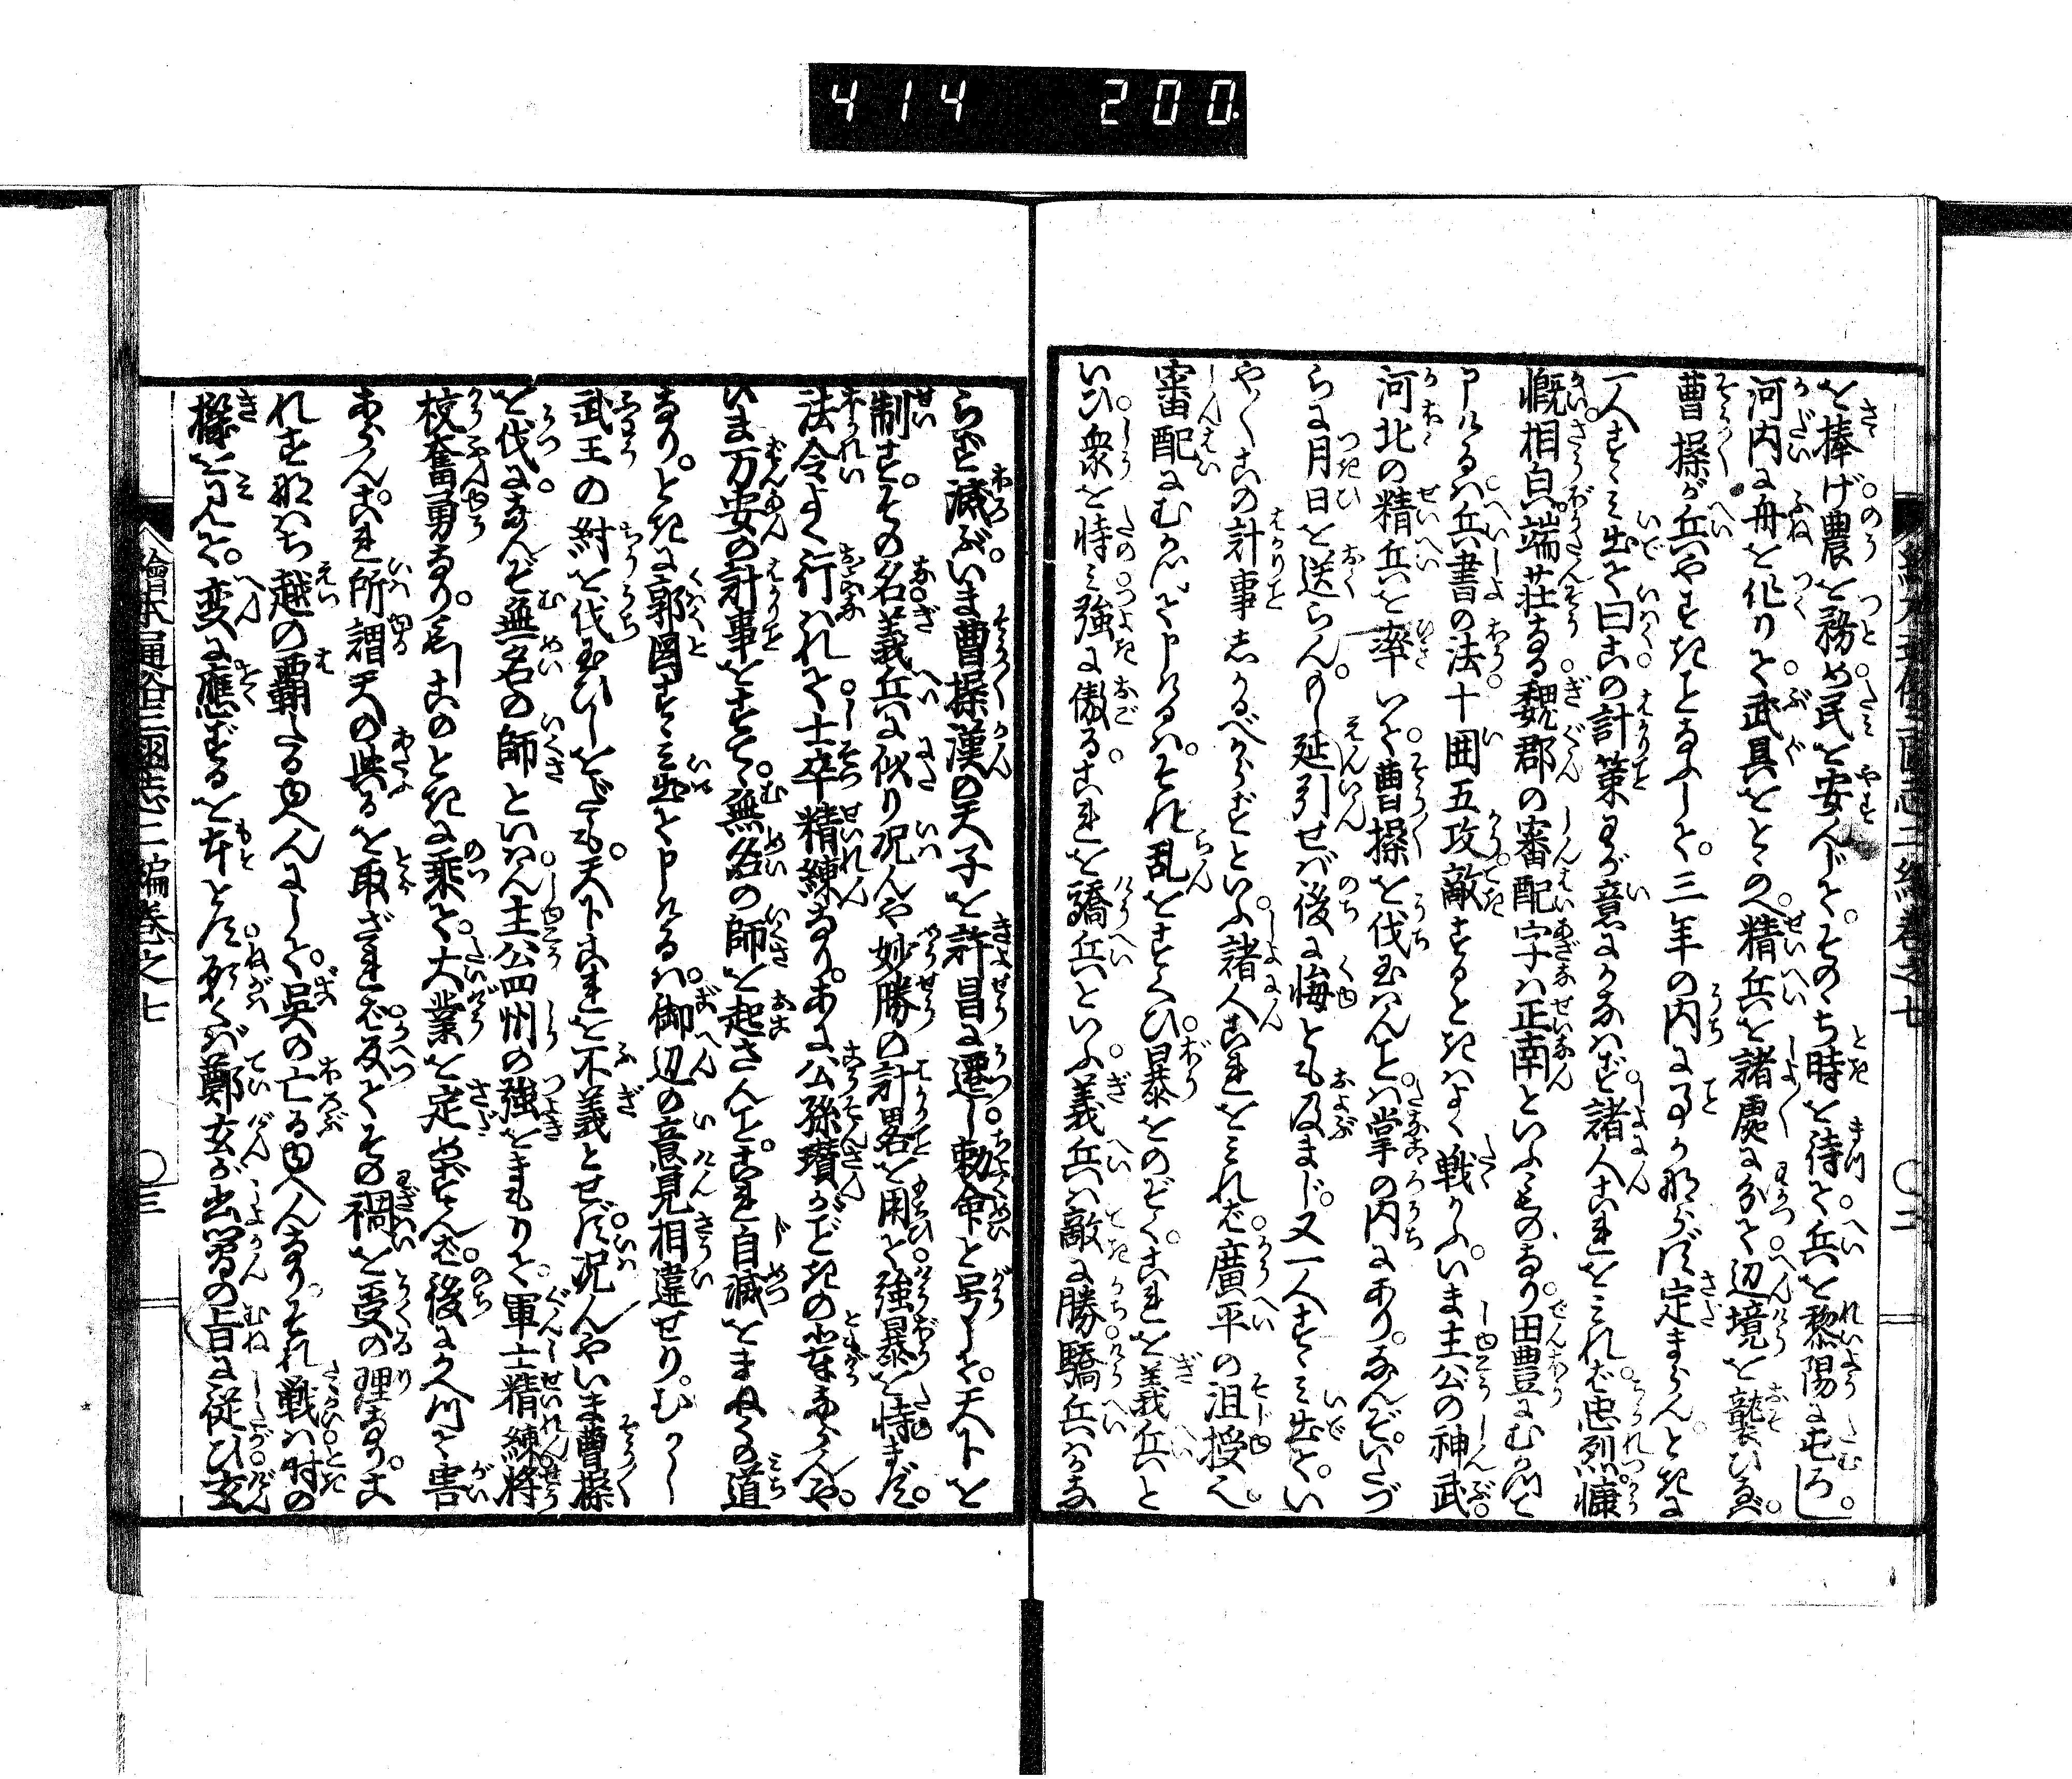 414 200
を捧げ農を務め民を安んじて。そのゝち時を待て。兵を黎陽に屯ろし。
河内に舟を作りて。武具をとゝのへ。精兵を諸処に分て辺境を襲ひなば。
曹操が兵やすきことなふして。三年の内に事かならず定まらん。ときに
一人すゝみ出て曰この計策わが意にかなはず。諸人これをみれば忠烈慷
慨相貌端荘なる。魏郡の審配字は正南といふものなり。田豊にむかつて
申けるは。兵書の法十囲五攻敵するときはよく戦かふ。いま主公の神武。
河北の精兵を率いて。曹操を伐玉はんことは。掌の内にあり。なんぞいたづ
らに月日を送らん。もし延引せば後に悔とも及まじ。又一人すゝみ出て。い
やくこの計事しかるべからずといふ諸人これをみれば。廣平の沮授
審配にむかつて申けるは。それ乱をすくひ。暴をのぞく。これを義兵と
いひ。衆を恃み強に傲る。これを驕兵といふ。義兵は敵に勝。驕兵はかな
らず滅ぶ。いま曹操漢の天子を許昌に遷し。勅命と号して。天下を
制す。その名義兵に似り況んや妙勝の計畧を用て強暴を恃まず。
法令よく行はれて。士卒精練なり。あに公孫瓚がごときの輩ならんや。
いま万安の計事をすてゝ。無名の師を起さんこと。これ自滅をまねくの道
なり。ときに郭図すゝみ出て申けるは。御辺の意見相違せり。むかし
武王の紂を伐玉ひしをだも。天下これを不義とせず。況んやいま曹操
を伐に。なんぞ無名の師といはん。主公四州の強をまもりて。軍士精練。将
校奮勇なり。もしこのときに乗て。大業を定めずんば。後にかへつて害
あらん。これ所謂天の與るを取ざれば。反てその禍を受の理なり。こ
れすなはち越の覇たるゆへんにして。呉の亡るゆへんなり。それ戦は時の
機をみて。変に應ずるを本とす。願くば鄭玄が書簡の旨に従ひ玄
繪本通俗三國志二編巻之七 〇二
繪本通俗三國志二編巻之七 〇三